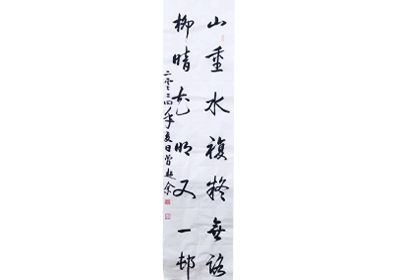 山重水複疑無路
柳暗花明又一邨
二零二四年夏日